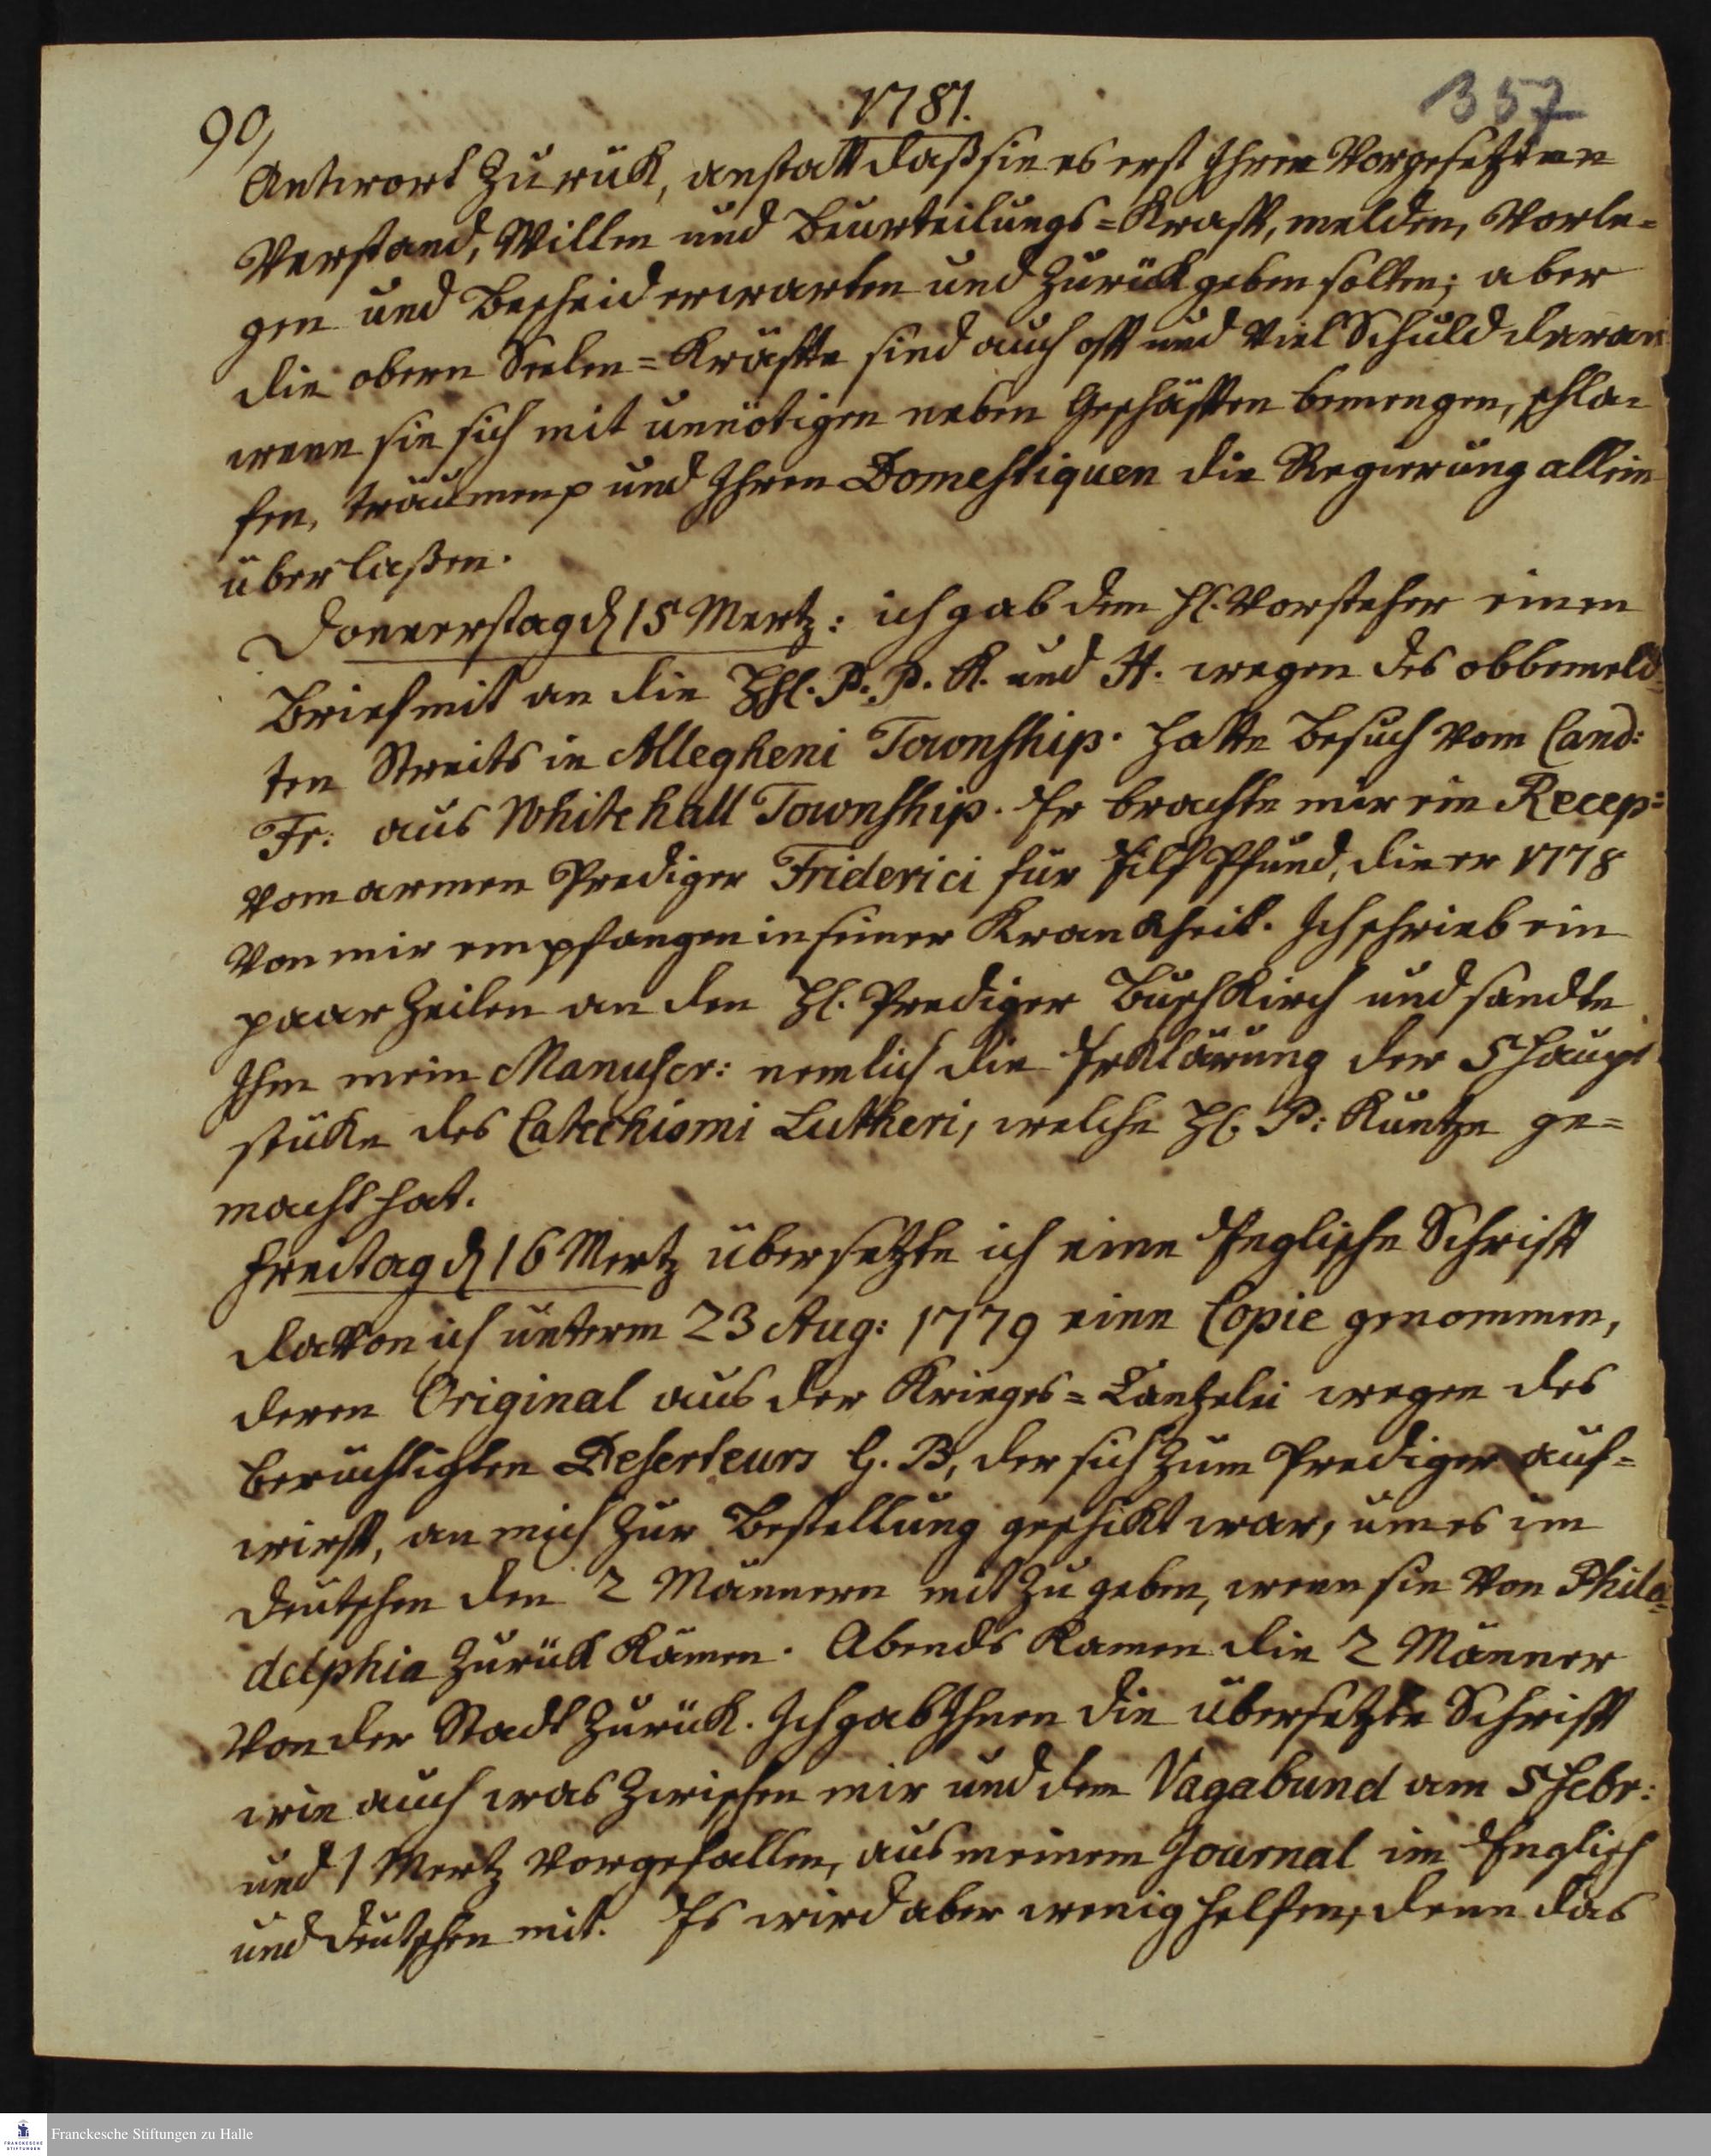 90,
1781.
357
Antwort zurük, anstatt daß sie es erst Ihren Vorgesetzten
Verstand, Willen und Beurteilungs=Krafft, melden, Vorle=
gen und Bescheid erwarten und zurükgeben solten; aber
die obern Seelen=Kräffte sind auch oft und viel Schuld daran
wenn sie sich mit unnötigen neben Geschäfften bemengen, schla=
fen, träumen p und Ihren Domestiquen die Regierung allein
überlaßen.
Donnerstag d 15 Mertz: ich gab dem H. Vorsteher einen
Brief mit an die HH. P. P. K. und H. wegen des obbemeld=
ten Streits in Allegheni Township. hatte Besuch vom Cand:
Fr: aus Whitehall Township. Er brachte mir ein Recep=
vom armen Prediger Friderici für Eilf Pfund, die er 1778
von mir empfangen in seiner Krankheit. Ich schrieb ein
paar Zeilen an den H. Prediger Buschkirch und sandte
Ihm mein Manuscr: nemlich die Erklärung der 5 haupt
stüke des Catechismi Lutheri, welche H. P: Kuntze ge=
macht hat.
Freitag d 16 Mertz übersetzte ich eine Englische Schrift
davon ich unterm 23 Aug: 1779 eine Copie genommen,
deren Original aus der Krieges=Cantzelei wegen des
berüchtigten Deserteurs G. B, der sich zum Prediger auf=
wirfft, an mich zur Bestellung geschikt war, um es im
deutschen den 2 Männern mit zu geben, wenn sie von Phila=
delphia zurük kämen. Abends kamen die 2 Männer
von der Stadt zurük. Ich gab Ihnen die übersetzte Schrifft
wie auch was zwischen mir und dem Vagabund am 5 Febr:
und 1 Mertz vorgefallen, aus meinem Journal im Englisch
und deutschen mit. Es wird aber wenig helfen, denn das
Franckesche Stiftungen zu Halle